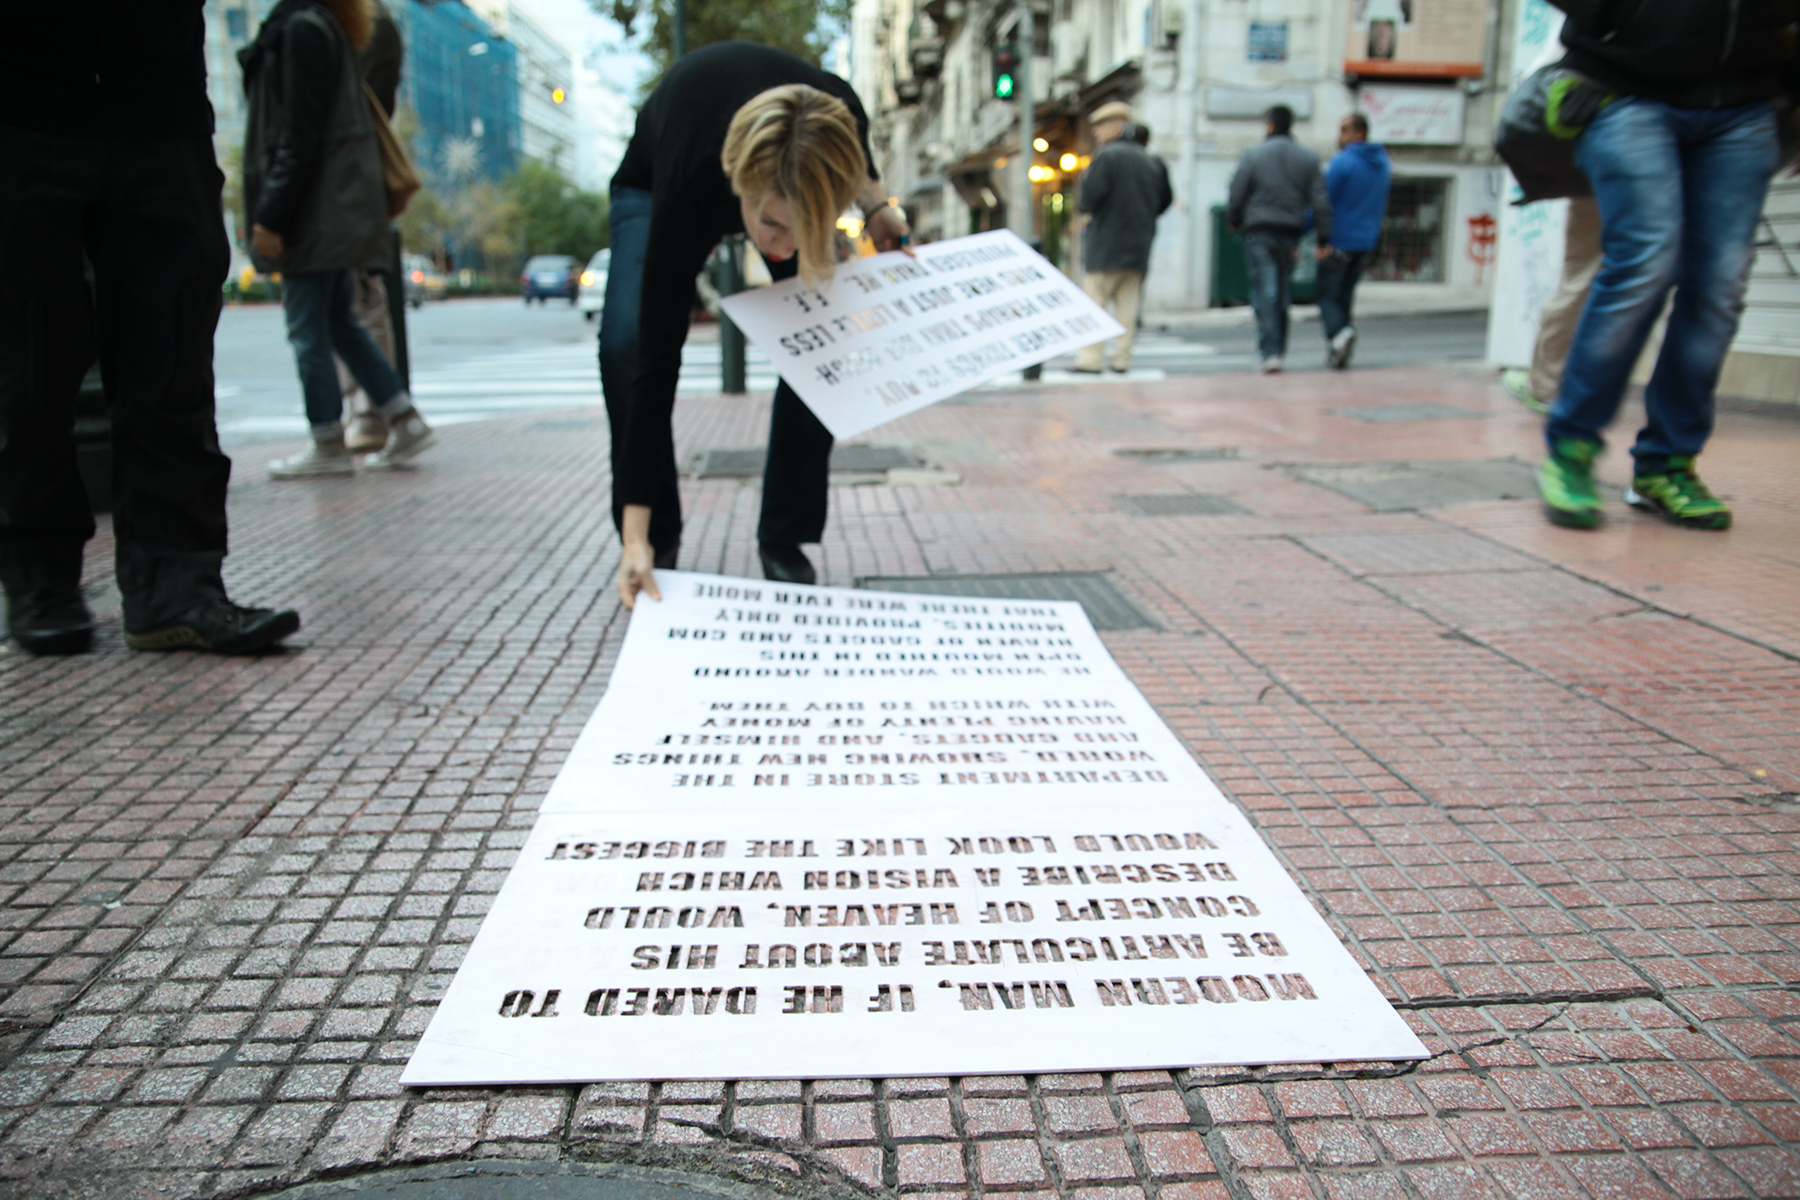 MODERN MAN, IF HE DARED TO
BE ARTICULATE ABOUT HIS
CONCEPT OF HEAVEN, WOULD
DESCRIBE A VISION WHICH
WOULD LOOK LIKE THE BIGGEST
DEPARTMENT STORE IN THE
WORLD, SHOWING NEW THINGS
AND GADGETS, AND HIMSELF
HAVING PLENTY OF MONEY
WITH WHICH TO BUY THEM.
HE WOULD WANDER AROUND
OPEN MOUTHED IN THIS
HEAVEN OF GADGETS AND COM
MODITIES, PROVIDED ONLY
THAT THERE WERE EVER MORE
AND NEWER THINGS TO BUY,
AND PERHAPS THAT
WERE JUST A LITTLE LESS
THAN HE.
E.F.